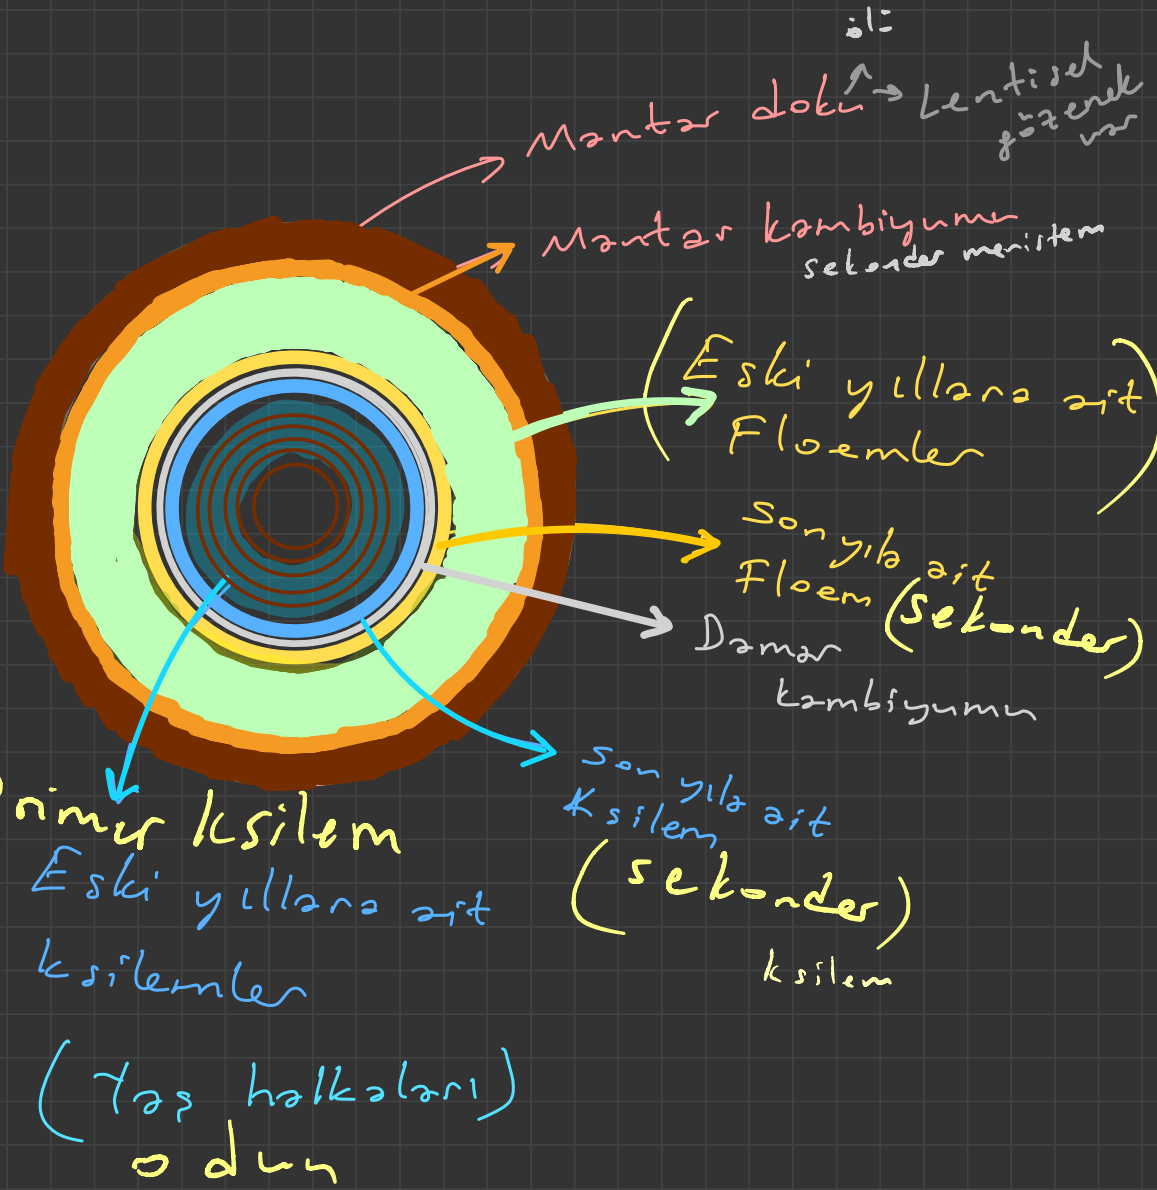 ölü
Mantar doku → Lentisel
gözenek
var
Mantar kambiyumu
sekonder meristem
(Eski yıllara ait
Floemler)
Son yıla ait
Floem (sekonder)
Damar
kambiyumu
Son yıla ait
Ksilem
(sekonder)
ksilem
Primer ksilem
Eski yıllara ait
ksilemler
(Yaş halkaları)
odun